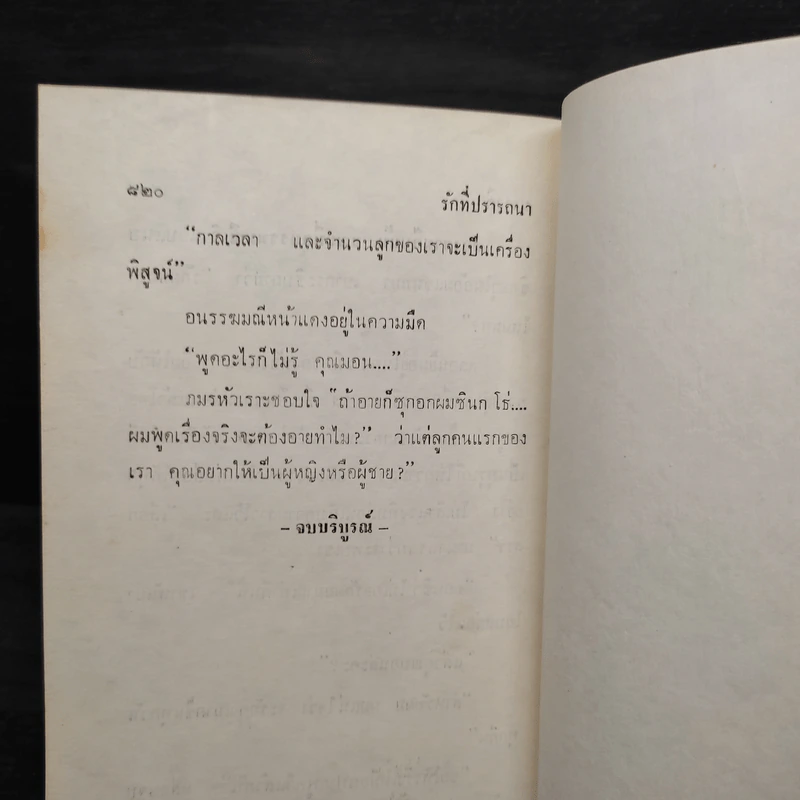 ๘๒๐
รักที่ปรารถนา
“กาลเวลา และจำนวนลูกของเราจะเป็นเครื่อง
พิสูจน์”
อนรรฆมณีหน้าแดงอยู่ในความมืด
“พูดอะไรก็ไม่รู้ คุณมอน....”
ภมรหัวเราะชอบใจ “ถ้าอายก็ซุกอกผมซินก โธ่....
ผมพูดเรื่องจริงจะต้องอายทำไม?” ว่าแต่ลูกคนแรกของ
เรา คุณอยากให้เป็นผู้หญิงหรือผู้ชาย?”
– จบบริบูรณ์ –